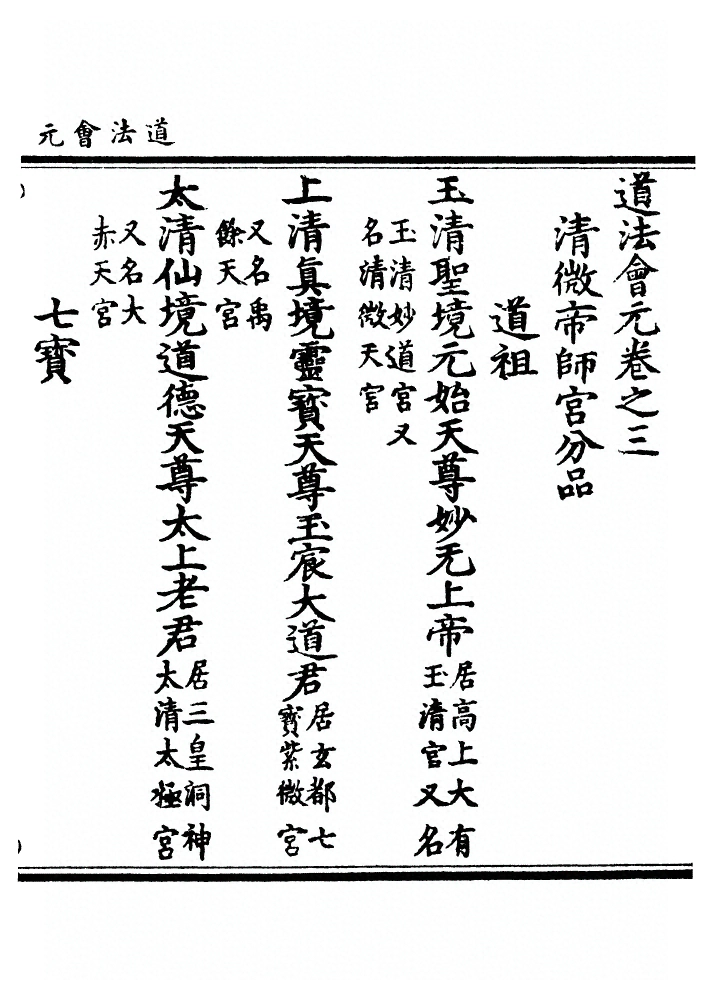 道法會元
道法會元卷之三
清微帝師宮分品
道祖
玉清聖境元始天尊妙无上帝居高上大有玉清宮又名
玉清妙道宮又名清微天宮
上清眞境靈寳天尊玉宸大道君居玄都七寳紫微宮
又名禹餘天宮
太清仙境道德天尊太上老君居三皇洞神太清太極宮
又名大赤天宮
七寳